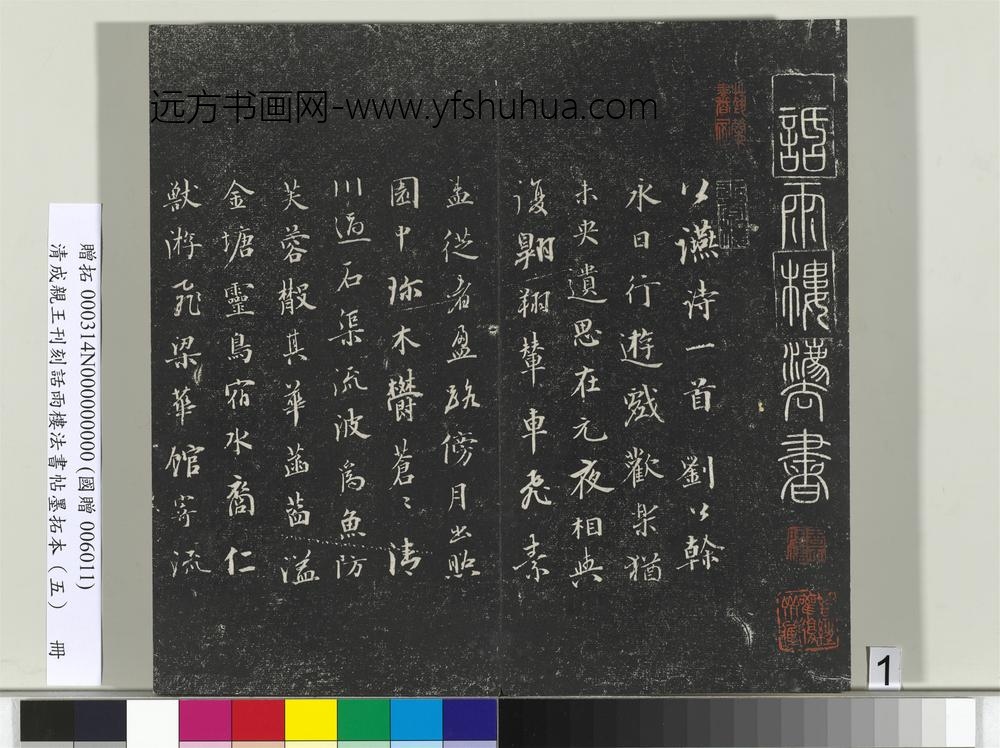 远方书画网-www.yfshuhua.com
話雨樓灋書
公讌诗一首 劉公幹
永日行遊戲歡樂猶
未央遺思在元夜相與
復翱翔輦車飛素
盖從者盈路傍月出照
園中珍木欝蒼〻清
川過石渠流波為魚防
芙蓉散其華菡萏溢
金塘靈鳥宿水裔仁
獸游飛梁華馆寄流
贈拓 000314N000000000(國贈 006011)
清成親王刊刻話雨樓法書帖墨拓本（五） 冊
1